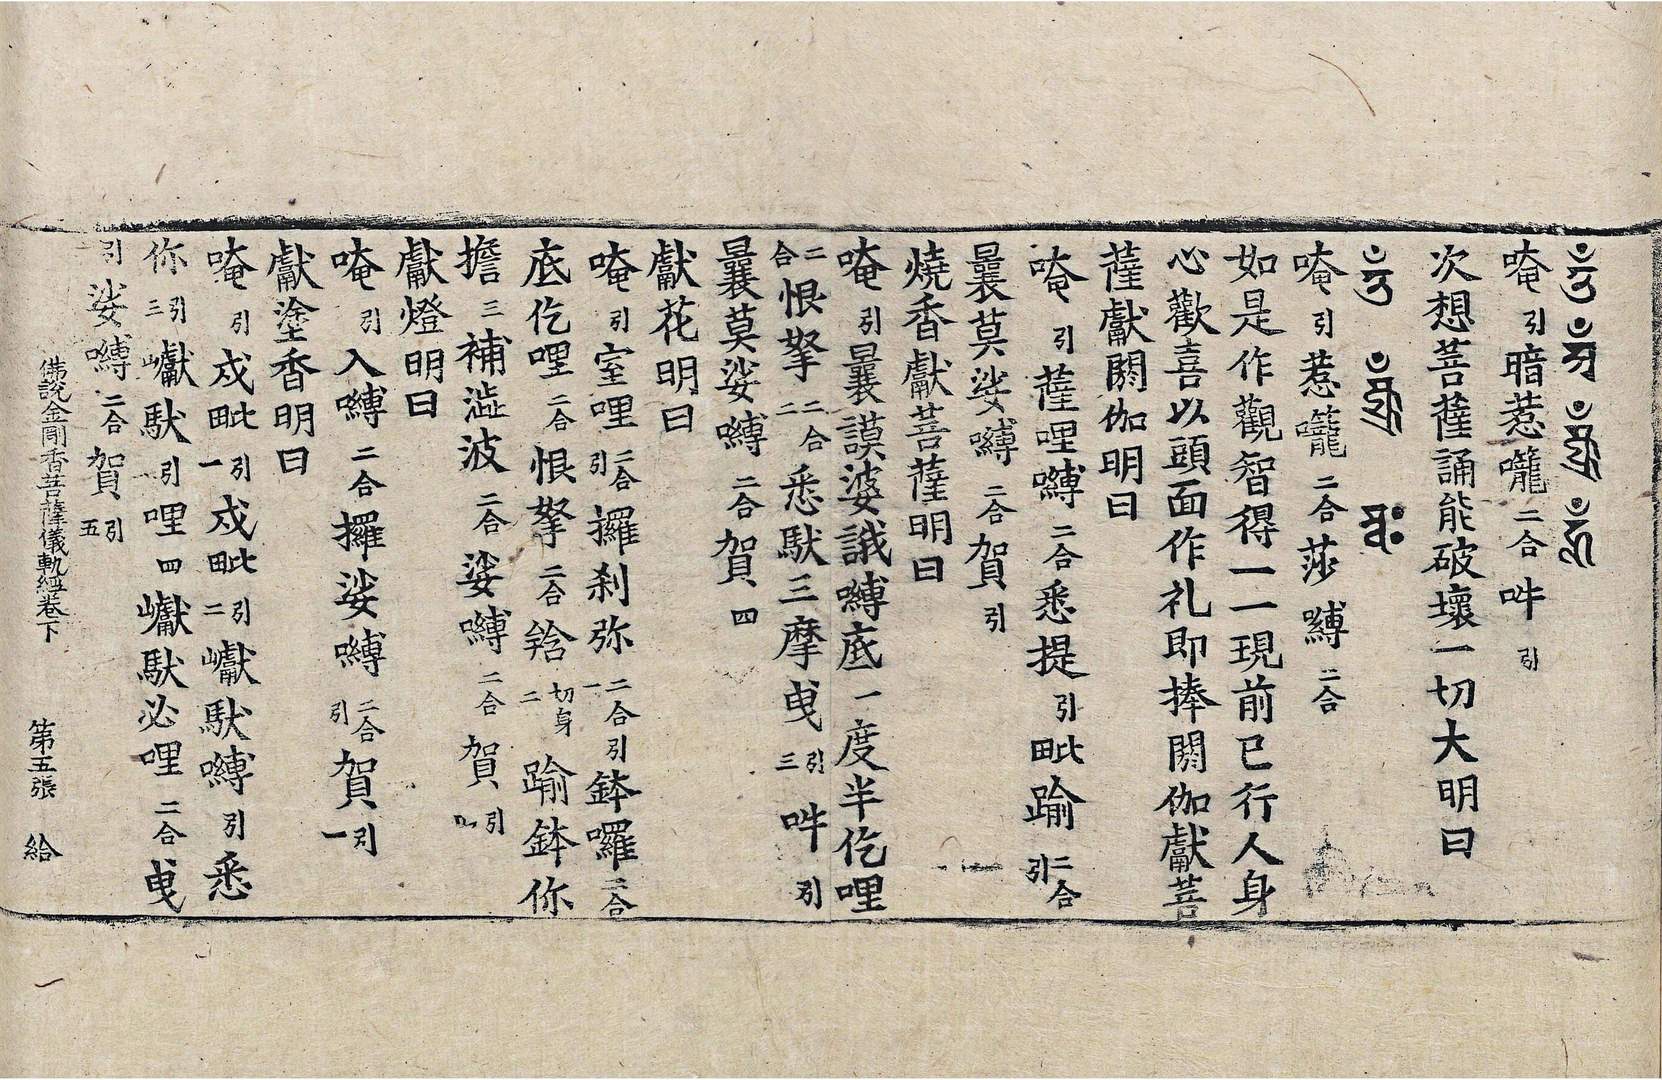 唵引暗惹𡃤二合吽引
次想菩薩誦能破壞一切大明曰
唵引惹𡃤二合莎嚩二合
如是作觀智得一一現前已行人身
心歡喜以頭面作礼即捧閼伽獻菩
薩獻閼伽明曰
唵引薩哩嚩二合悉提引毗踰二合引
曩莫娑嚩二合賀引
燒香獻菩薩明曰
唵引曩謨婆誐嚩底一度半仡哩
二合恨拏二合二悉馱三摩曳引三吽引
曩莫娑嚩二合賀四
獻花明曰
唵引室哩二合引囉刹弥二合引一鉢囉二合
底仡哩二合恨拏二合䤴切身二踰鉢你
擔三補澁波二合娑嚩二合賀引四
獻燈明曰
唵引入嚩二合攞娑嚩二合引賀引一
獻塗香明曰
唵引成毗引一成毗引二巘馱嚩引悉
你引三巘馱引哩四巘馱必哩二合曳
引娑嚩二合賀引五
佛說金剛香菩薩儀軌經卷下 第五張 給